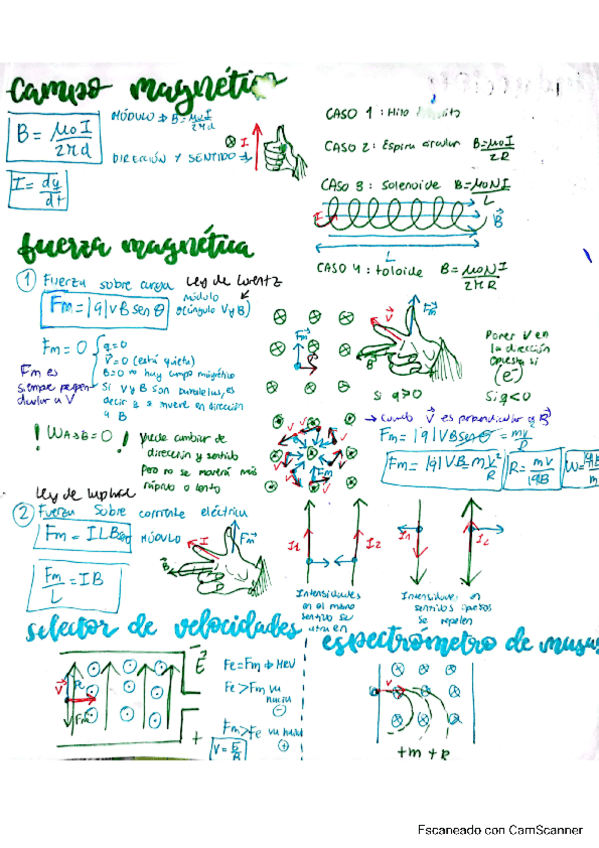 campo magnético
B = μ0 I / 2πd
MÓDULO → B = μ0 I / 2πd
DIRECCIÓN Y SENTIDO →
I
I = dq / dt
CASO 1 : Hilo
CASO 2 : Espira circular B = μ0 I / 2R
CASO 3 : Solenoide B = μ0 N I / L
I
B
L
CASO 4 : toloide B = μ0 N I / 2πR
fuerza magnética
1 Fuerza sobre carga Ley de Lorentz
Fm = |q| v B sen θ
módulo
α(ángulo V y B)
Fm = 0
q=0
V=0 (está quieta)
B=0 no hay campo magnético
Si V y B son paralelas, es
decir B se mueve en dirección
a B
Fm es
siempre perpen-
dicular a V
¡ WA→B = 0 !
puede cambiar de
dirección y sentido
pero no se moverá más
rápido o lento
Fm
V
Fm
B
Si q>0
Poner V en
la dirección
opuesta si
(e-)
Si q<0
→ cuando V es perpendicular a B
Fm = |q| V B sen θ = mv / R
Fm = |q| V B = m v² / R
R = mv / |q|B
Ley de Laplace
2 Fuerza sobre corriente eléctrica
Fm = I L B sen
MÓDULO
Fm / L = IB
I
Fm
B
I1
I2
I1
I2
Intensidades
en el mismo
sentido se
atraen
Intensidades en
sentidos opuestos
se repelen
selector de velocidades
E
V
Fe
Fm
Fe = Fm → MRU
Fe > Fm va
hacia
-
Fm > Fe va hacia
+
V = E / B
-
+
espectrómetro de masas
V
+m +R
Escaneado con CamScanner